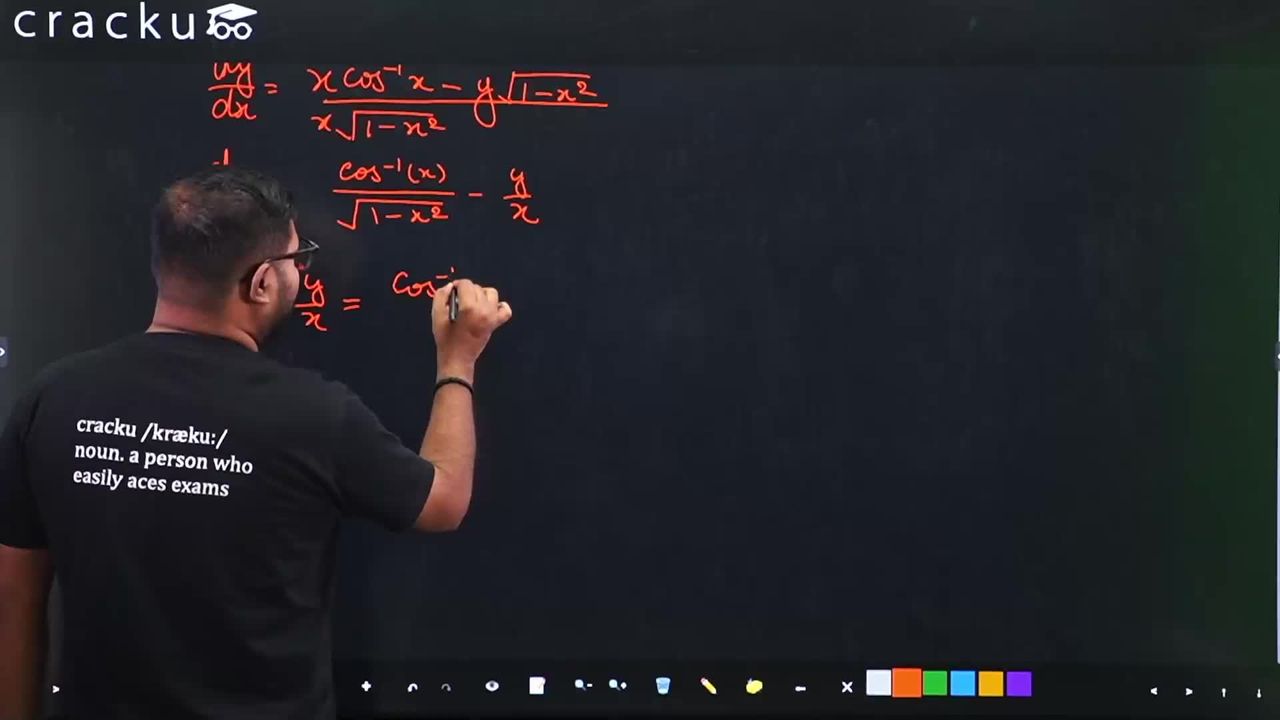 cracku
dy/dx = (x cos⁻¹x − y√(1−x²)) / (x√(1−x²))
cos⁻¹(x)/√(1−x²) − y/x
y/x = cos⁻¹
cracku /kræku:/
noun. a person who
easily aces exams